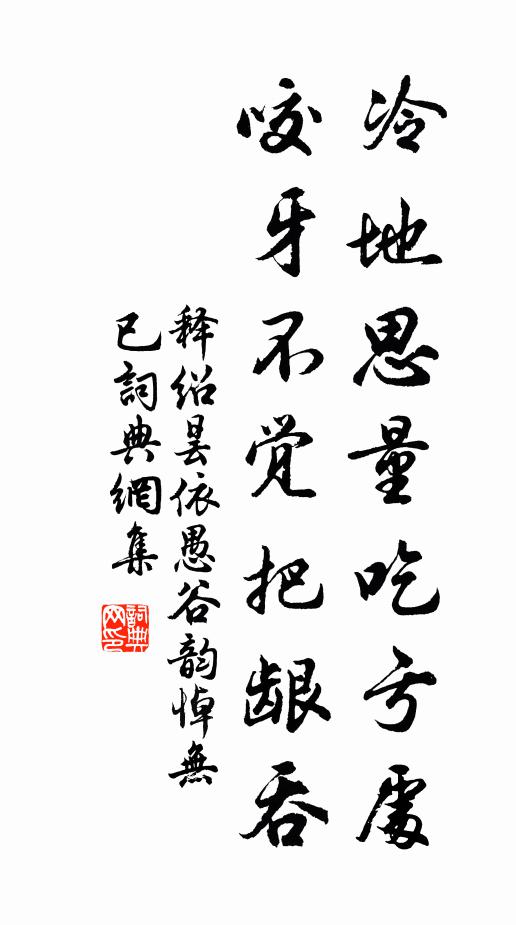 冷地思量吃亏處
咬牙不觉把龈吞
释绍昙依愚谷韵悼無
已詞典網集
詞典網印